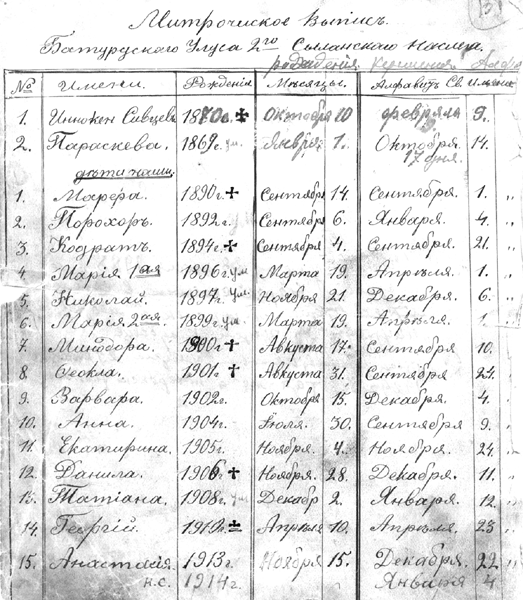 Митрочиское Выпись.
Батурудскаго Улуса 2го Сыланскаго Наслега
рождения
№ Имени. Рожденiя Мѣсяцы. Алфавитъ Св. Имени
1. Иннокен Сивцевъ 1870г. ✝ Октября 10 февраля 9.
2. Параскева. 1869г. ум. Января 1. Октября. 14.
17 дня.
дѣти наши
1. Марѳа. 1890г. ✝ Сентября 14. Сентября. 1. "
2. Порохоръ. 1892г. Сентября 6. Января. 4. "
3. Кодратъ. 1894г. ✝ Сентября 4. Сентября. 21. "
4. Марiя 1ая 1896г. ум. Марта 19. Апрѣля. 1. "
5. Николай. 1897г. ум. Ноября 21. Декабря. 6. "
6. Марiя 2ая. 1899г. ум. Марта 19. Апрѣля. 1. "
7. Минодора. 1900г. ✝ Августа 17. Сентября 10. "
8. Ѳеокла. 1901г. ✝ Августа 31. Сентября 24. "
9. Варвара. 1902г. Октября 15. Декабря. 4. "
10. Анна. 1904г. Іюля. 30. Сентября 9. "
11. Екатирина. 1905г. Ноября. 4. Ноября. 24. "
12. Данила. 1906г. ✝ Ноября. 28. Декабря. 11. "
13. Татiана. 1908г. ум. Декабр 2. Января. 12. "
14. Георгiй. 1910г. ✝ Апрѣля 10. Апрѣля. 23 "
15. Анастасiя 1913г. Ноября 15. Декабря. 22 "
н.с. 1914г. Января 4